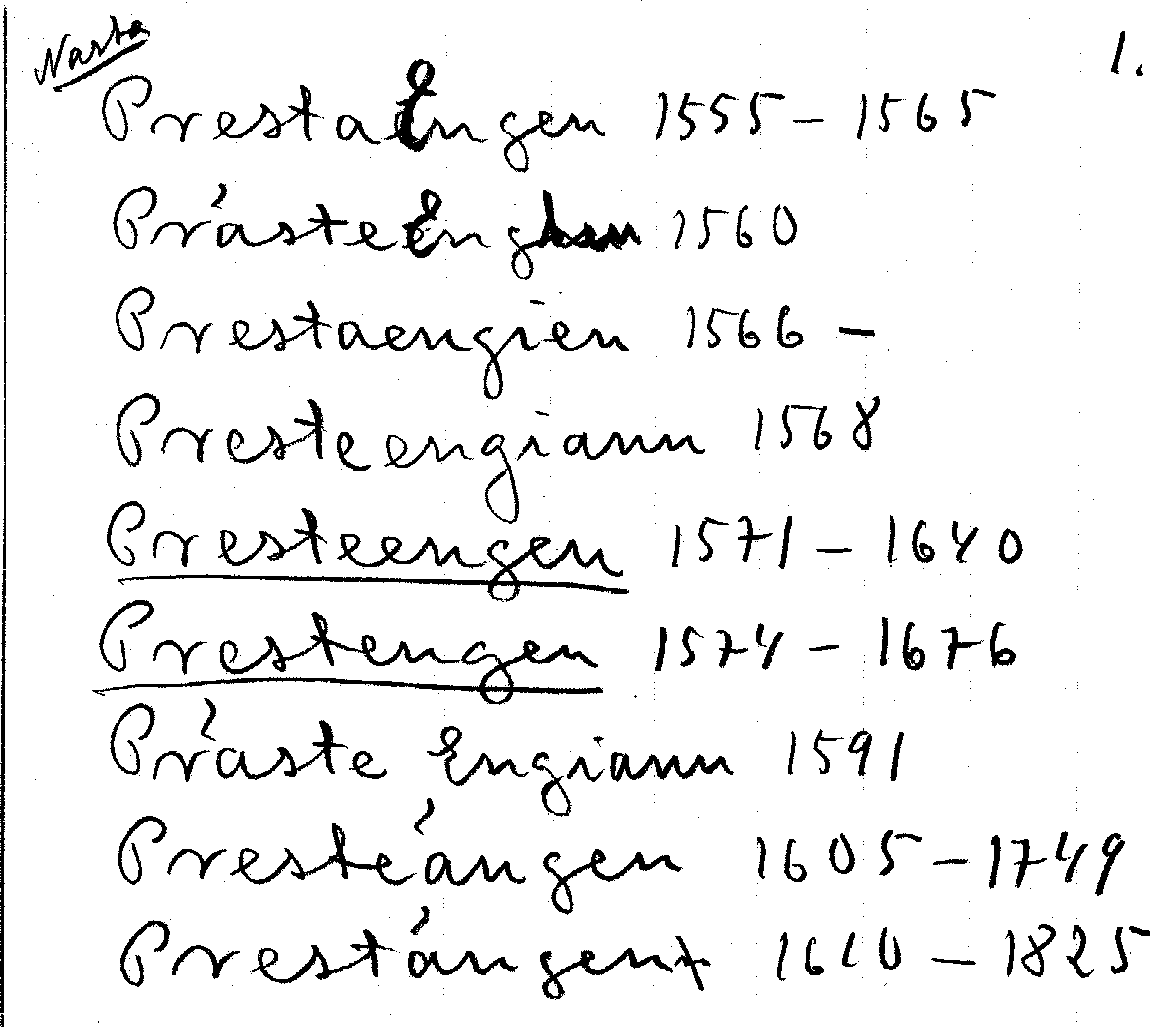 Nasta
1.
PrestaEngen 1555 – 1565
PrästeEng 1560
Prestaengien 1566 –
Presteengiann 1568
Presteengen 1571 – 1640
Prestengen 1574 – 1676
Präste Engiann 1591
Presteängen 1605 – 1749
Prestängen 1610 – 1825